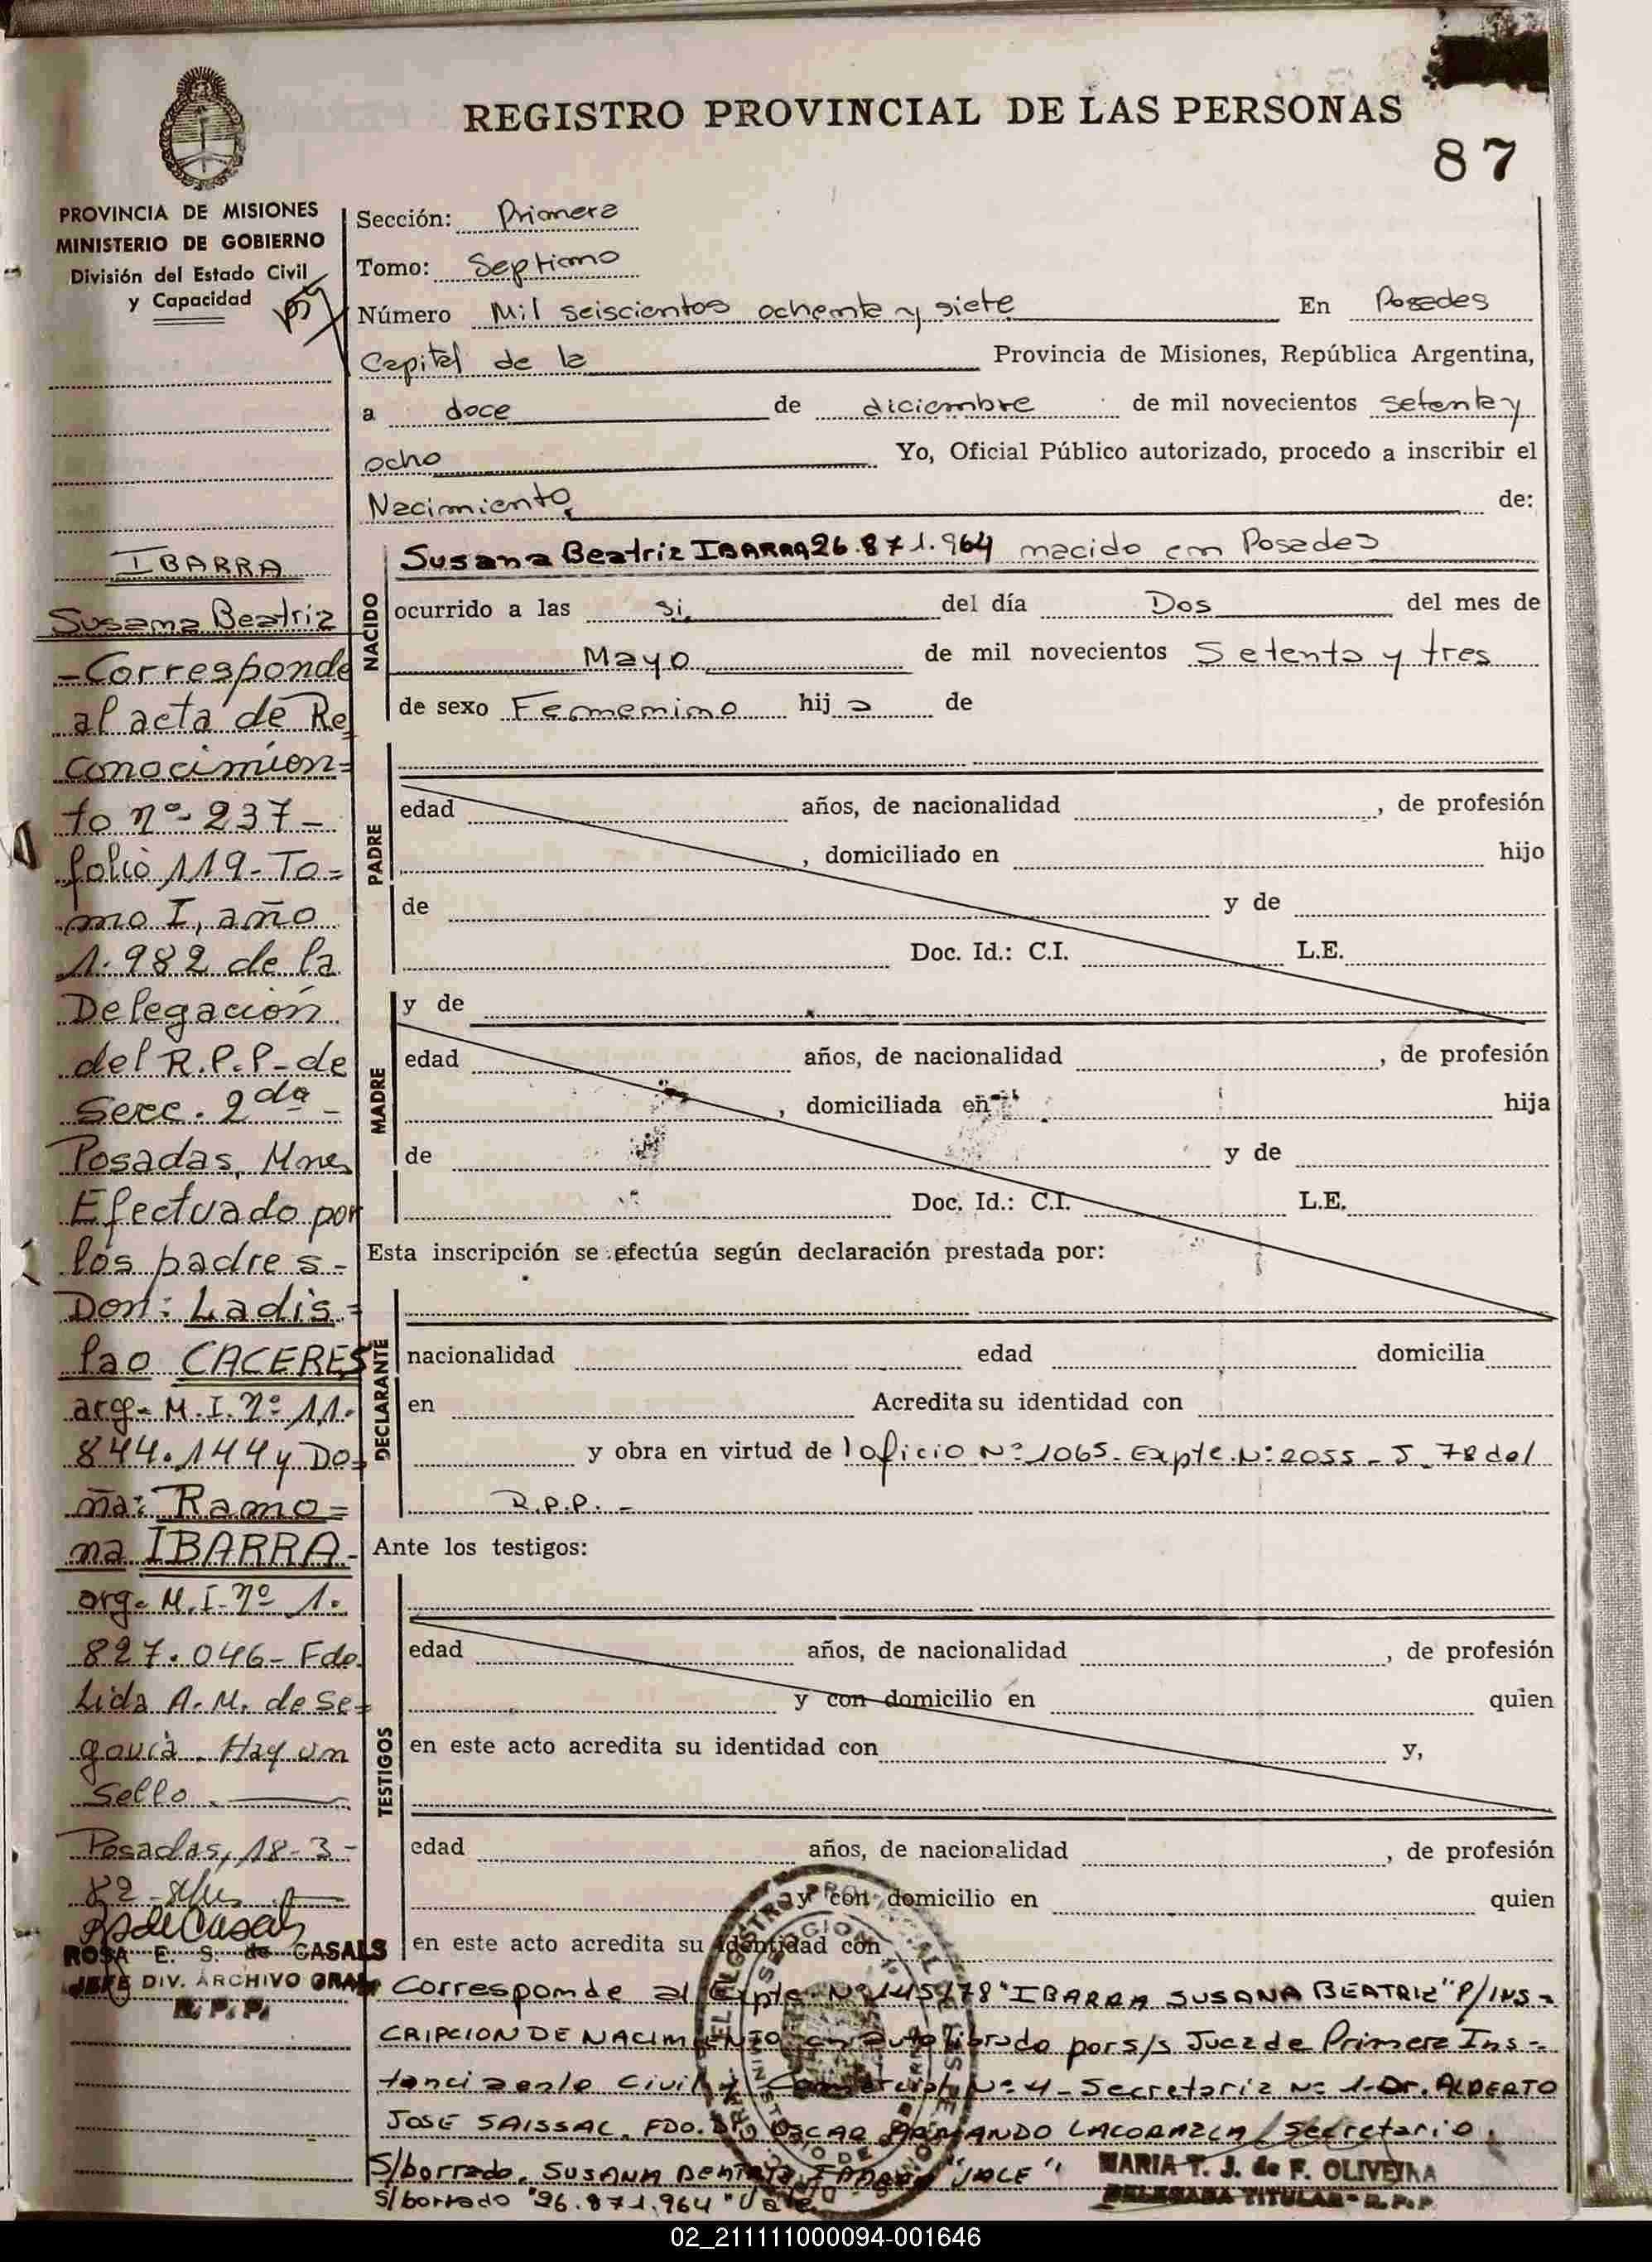 REGISTRO PROVINCIAL DE LAS PERSONAS
87
PROVINCIA DE MISIONES
MINISTERIO DE GOBIERNO
División del Estado Civil
y Capacidad
Sección: Primera
Tomo: Septimo
Número Mil seiscientos ochenta y siete En Posadas
Capital de la Provincia de Misiones, República Argentina,
a doce de diciembre de mil novecientos setenta y
ocho Yo, Oficial Público autorizado, procedo a inscribir el
Nacimiento de:
NACIDO
Susana Beatriz IBARRA 26.871.964 nacido en Posadas
ocurrido a las si. del día Dos del mes de
Mayo de mil novecientos Setenta y tres
de sexo Femenino hija de
PADRE
edad años, de nacionalidad , de profesión
, domiciliado en hijo
de y de
Doc. Id.: C.I. L.E.
MADRE
y de
edad años, de nacionalidad , de profesión
, domiciliada en hija
de y de
Doc. Id.: C.I. L.E.
Esta inscripción se efectúa según declaración prestada por:
DECLARANTE
nacionalidad edad domicilia
en Acredita su identidad con
y obra en virtud de l oficio Nº 1065- Expte. Nº 2055-J-78 del
R.P.P.-
Ante los testigos:
TESTIGOS
edad años, de nacionalidad , de profesión
y con domicilio en quien
en este acto acredita su identidad con y,
edad años, de nacionalidad , de profesión
y con domicilio en quien
en este acto acredita su identidad con
Corresponde al Expte Nº 145/78 "IBARRA SUSANA BEATRIZ" P/INS-
CRIPCION DE NACIMIENTO en auto librado por s/s Juez de Primera Ins-
tancia en lo Civil y Comercial Nº 4- Secretaria Nº 1- Dr. ALBERTO
JOSE SAISSAC. FDO. OSCAR ARMANDO Secretario.
S/borrado. SUSANA BEATRIZ IBARRA "VALE"
S/borrado "26.871.964" Vale
MARIA T. J. de F. OLIVEIRA
DELEGADA TITULAR - R.P.P.
IBARRA
Susana Beatriz
-Corresponde
al acta de Re
conocimien=
to nº- 237-
folio 119- To=
mo I, año
1.982 de la
Delegación
del R.P.P- de
Secc. 2da-
Posadas, Mnes
Efectuado por
los padres-
Don: Ladis=
lao CACERES
arg- M.I. nº 11.
844.144 y Do=
ña: Ramo=
na IBARRA-
arg- M.I-nº 1.
827.046- Fdo.
Lida A. M. de Se=
govia. Hay un
Sello.
Posadas, 18-3-
82-
ROSA E. S. de CASALS
JEFE DIV. ARCHIVO GRAL
R. P. P.
02_211111000094-001646